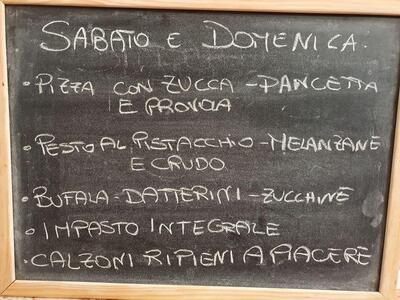 SABATO E DOMENICA.
• PIZZA CON ZUCCA - PANCETTA
E PROVOLA
• PESTO AL PISTACCHIO - MELANZANE
E CRUDO
• BUFALA - DATTERINI - ZUCCHINE
• IMPASTO INTEGRALE
• CALZONI RIPIENI A PIACERE